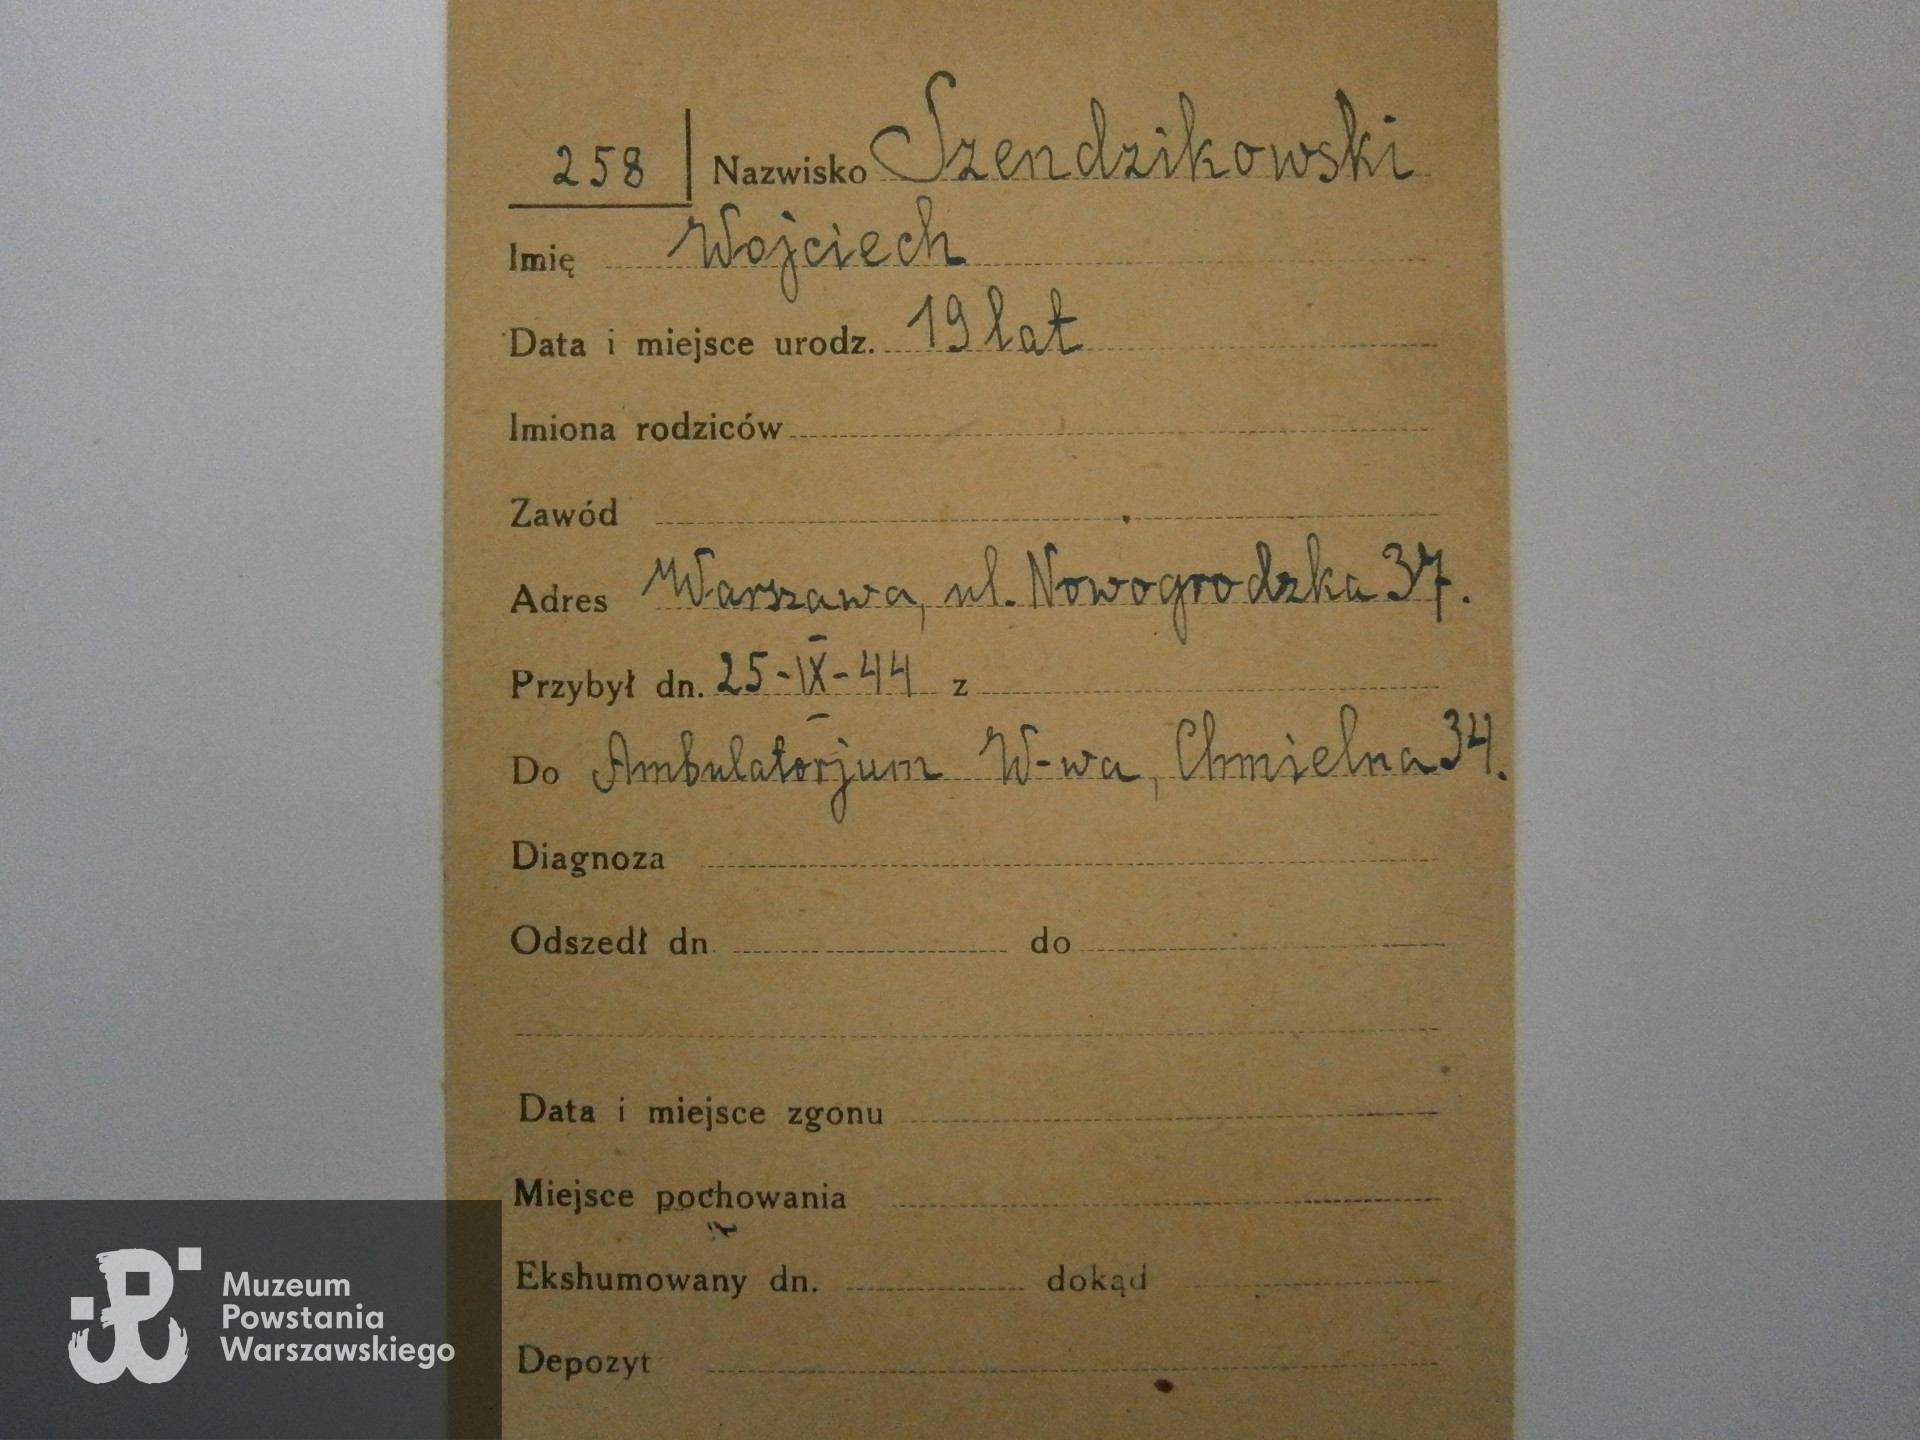 258 Nazwisko Szendzikowski
Imię Wojciech
Data i miejsce urodz. 19 lat
Imiona rodziców
Zawód
Adres Warszawa, ul. Nowogrodzka 37.
Przybył dn. 25-IX-44 z
Do Ambulatorjum W-wa, Chmielna 34.
Diagnoza
Odszedł dn. do
Data i miejsce zgonu
Miejsce pochowania
Ekshumowany dn. dokąd
Depozyt
Muzeum
Powstania
Warszawskiego